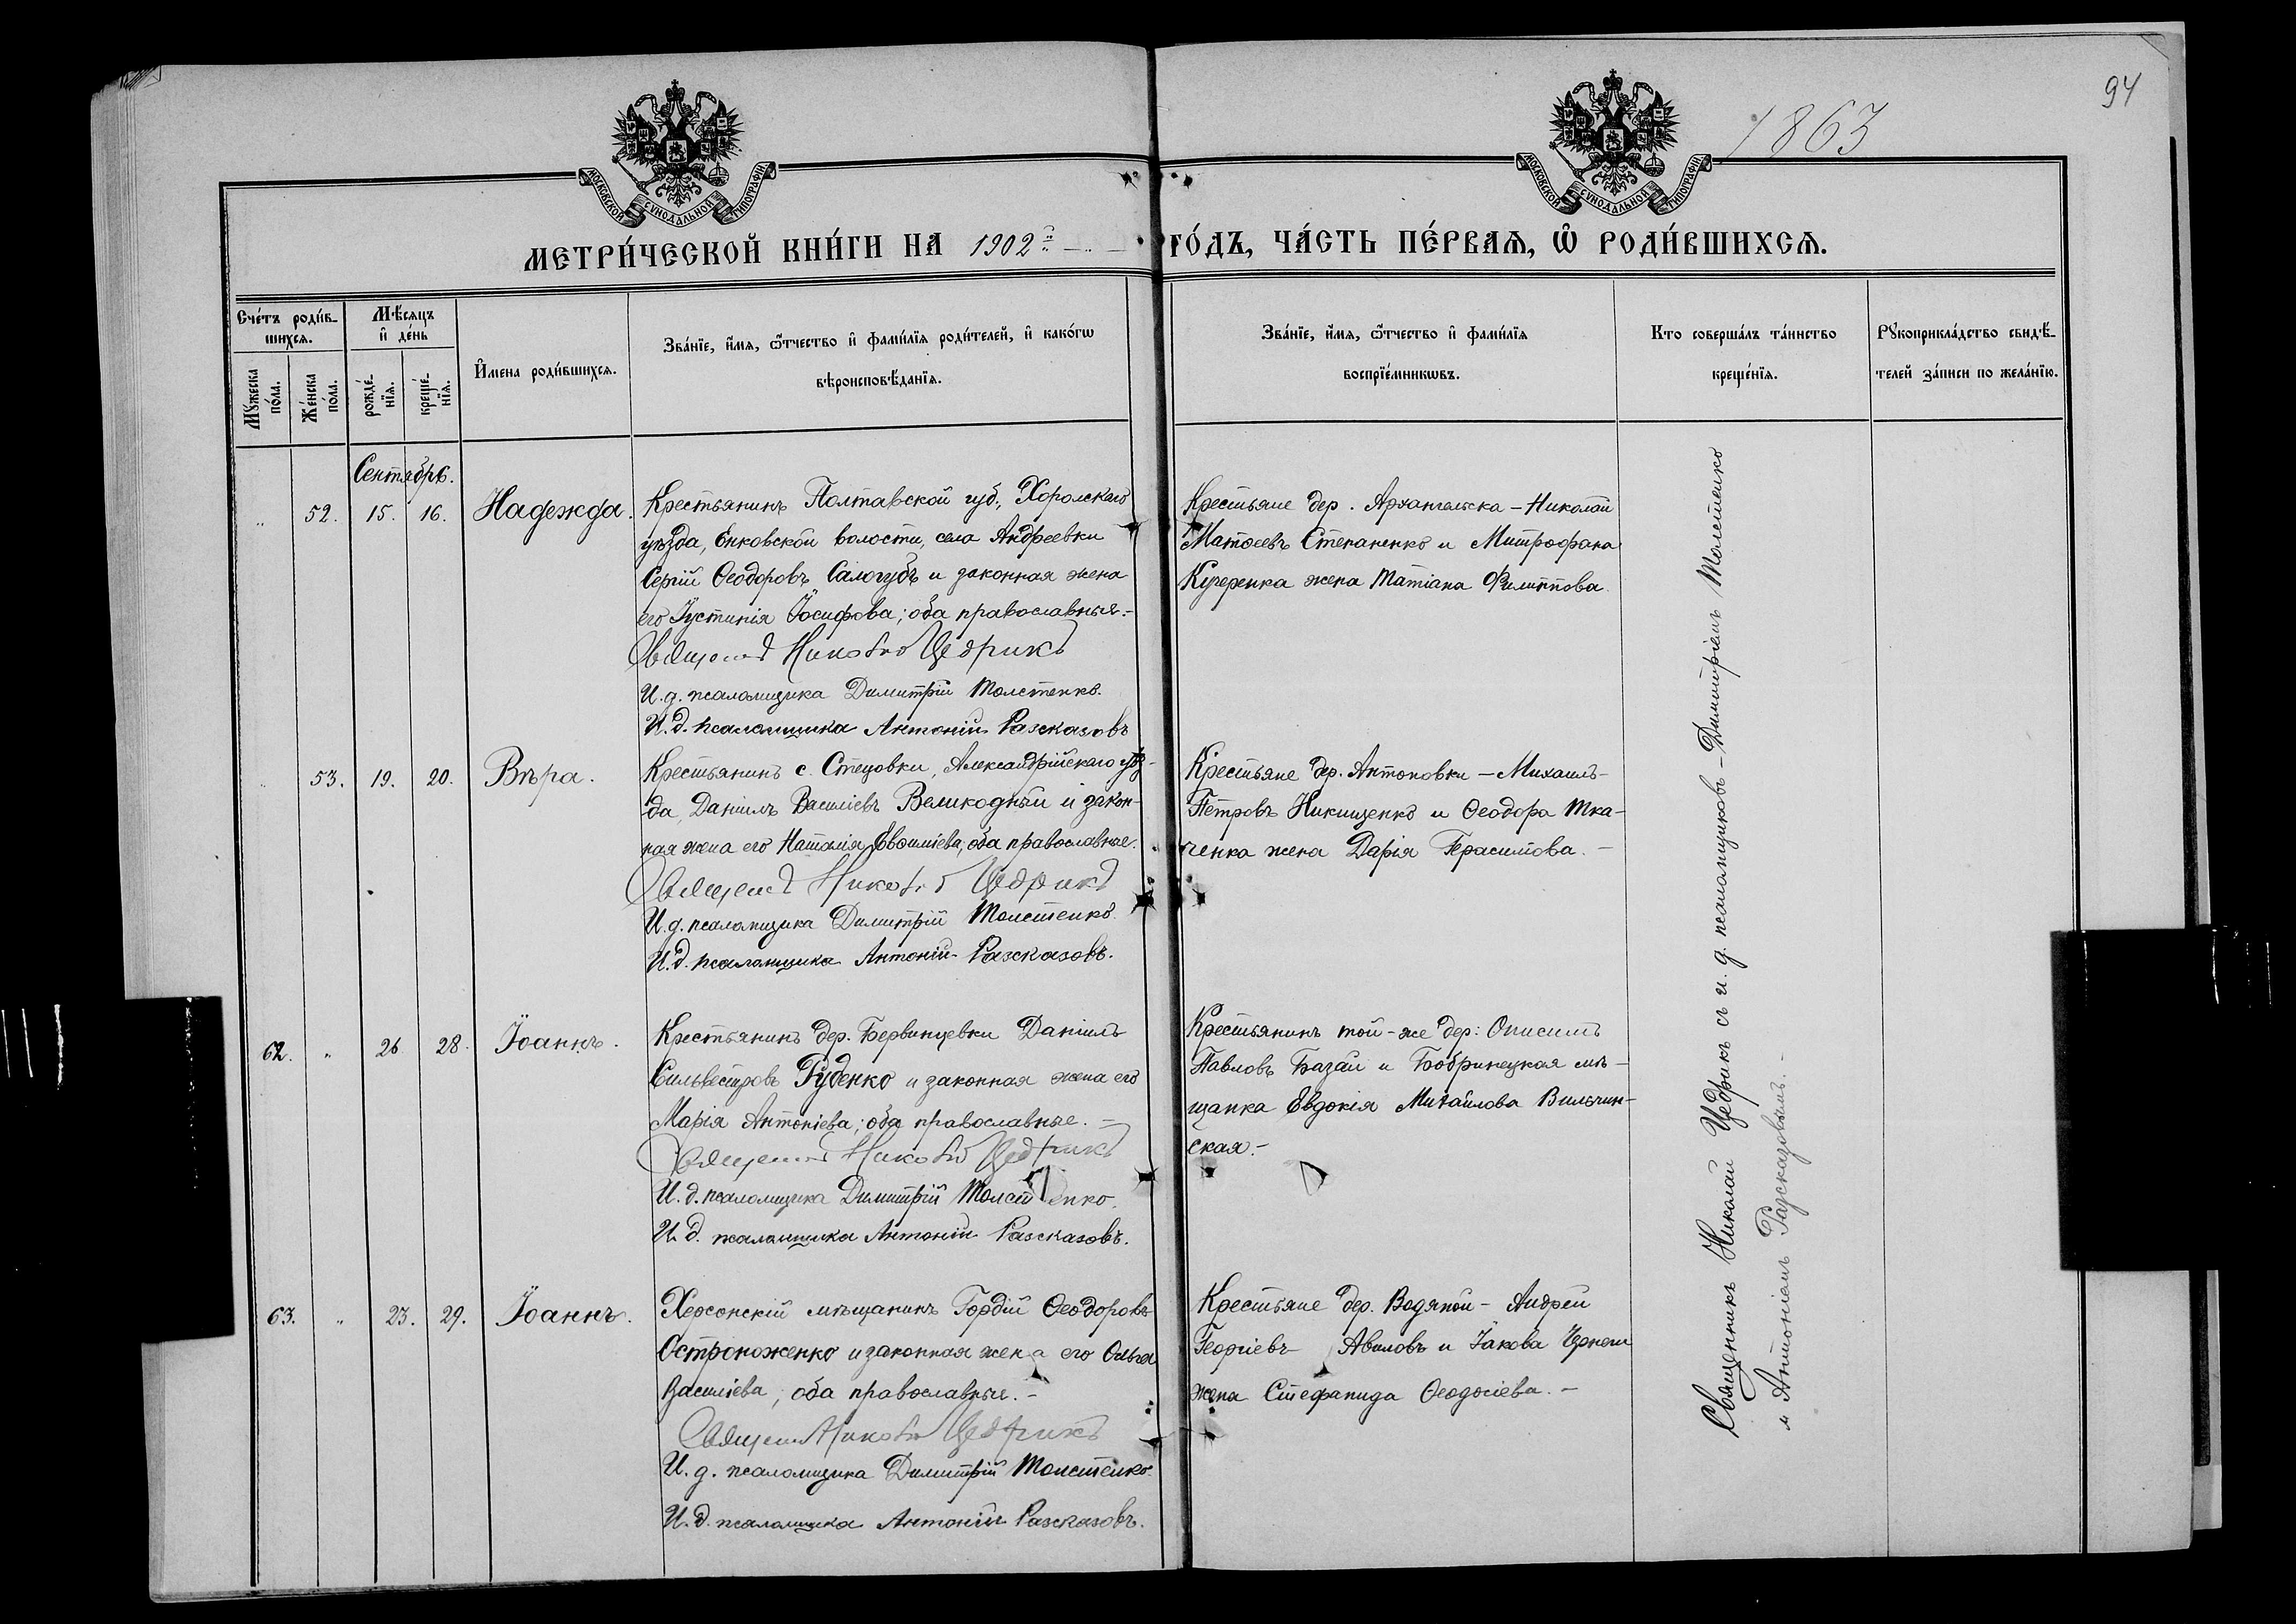 94
1863
МОСКОВСКОЙ СѴНОДАЛЬНОЙ ТИПОГРАФІИ
МОСКОВСКОЙ СѴНОДАЛЬНОЙ ТИПОГРАФІИ
МЕТРИ́ЧЕСКОЙ КНИ́ГИ НА 1902й ГО́ДЪ, ЧА́СТЬ ПЕ́РВАѦ, Ѽ РОДИ́ВШИХСѦ.
Сче́тъ роди́в-
шихсѧ.
Мꙋ́жеска по́ла.
Же́нска по́ла.
Мѣ́сѧцъ
и҆ де́нь
рожде́-нїѧ.
креще́-нїѧ.
И҆́мена роди́вшихсѧ.
Зва́нїе, и҆́мѧ, ѻ҆́тчество и҆ фами́лїѧ роди́телей, и҆ како́гѡ
вѣроисповѣ́данїѧ.
Зва́нїе, и҆́мѧ, ѻ҆́тчество и҆ фами́лїѧ
воспрїе́мникѡвъ.
Кто соверша́лъ та́инство
креще́нїѧ.
Рꙋкоприкла́дство свидѣ́-
телей за́писи по жела́нїю.
Сентябрь.
" 52. 15. 16. Надежда.
Крестьянинъ Полтавской губ., Хорольскаго
уѣзда, Енковской волости, села Андреевки
Сергій Ѳеодоровъ Салогубъ и законная жена
его Іустинія Іосифова; оба православные.-
Священникъ Николай Цедрикъ
И. д. псаломщика Димитрій Толстенко.
И. д. псаломщика Антоній Разсказовъ
Крестьяне дер. Архангельска - Николай
Матѳеевъ Степаненко и Митрофана
Кучеренка жена Татіана Филиппова
" 53. 19. 20. Вѣра.
Крестьянинъ с. Стецовки, Александрійскаго уѣз-
да, Даніилъ Василіевъ Великодный и закон-
ная жена его Наталія Евѳиміева; оба православные.
Священникъ Николай Цедрикъ
И. д. псаломщика Димитрій Толстенко
И. д. псаломщика Антоній Разсказовъ.
Крестьяне дер. Антоновки - Михаилъ
Петровъ Никищенко и Ѳеодора Тка-
ченка жена Дарія Герасимова. -
62. " 26 28. Іоаннъ.
Крестьянинъ дер. Бервинцевки Даніилъ
Сильвестровъ Руденко и законная жена его
Марія Антоніева; оба православные. -
Священникъ Николай Цедрикъ
И. д. псаломщика Димитрій Толстенко.
И. д. псаломщика Антоній Разсказовъ.
Крестьянинъ той-же дер: Онисимъ
Павловъ Базай и Бобринецкая мѣ-
щанка Евдокія Михайлова Вильчин-
ская.-
63. " 23. 29. Іоаннъ.
Херсонскій мѣщанинъ Гордій Ѳеодоровъ
Остроноженко и законная жена его Ольга
Василіева; оба православные. -
Священникъ Николай Цедрикъ
И. д. псаломщика Димитрій Толстенко.
И. д. псаломщика Антоній Разсказовъ.
Крестьяне дер. Водяной - Андрей
Георгіевъ Авиловъ и Іакова
жена Стефанида Ѳеодосіева. -
Священникъ Николай Цедрикъ съ и. д. псаломщиковъ - Димитріемъ Толстенко
и Антоніемъ Разсказовымъ. -